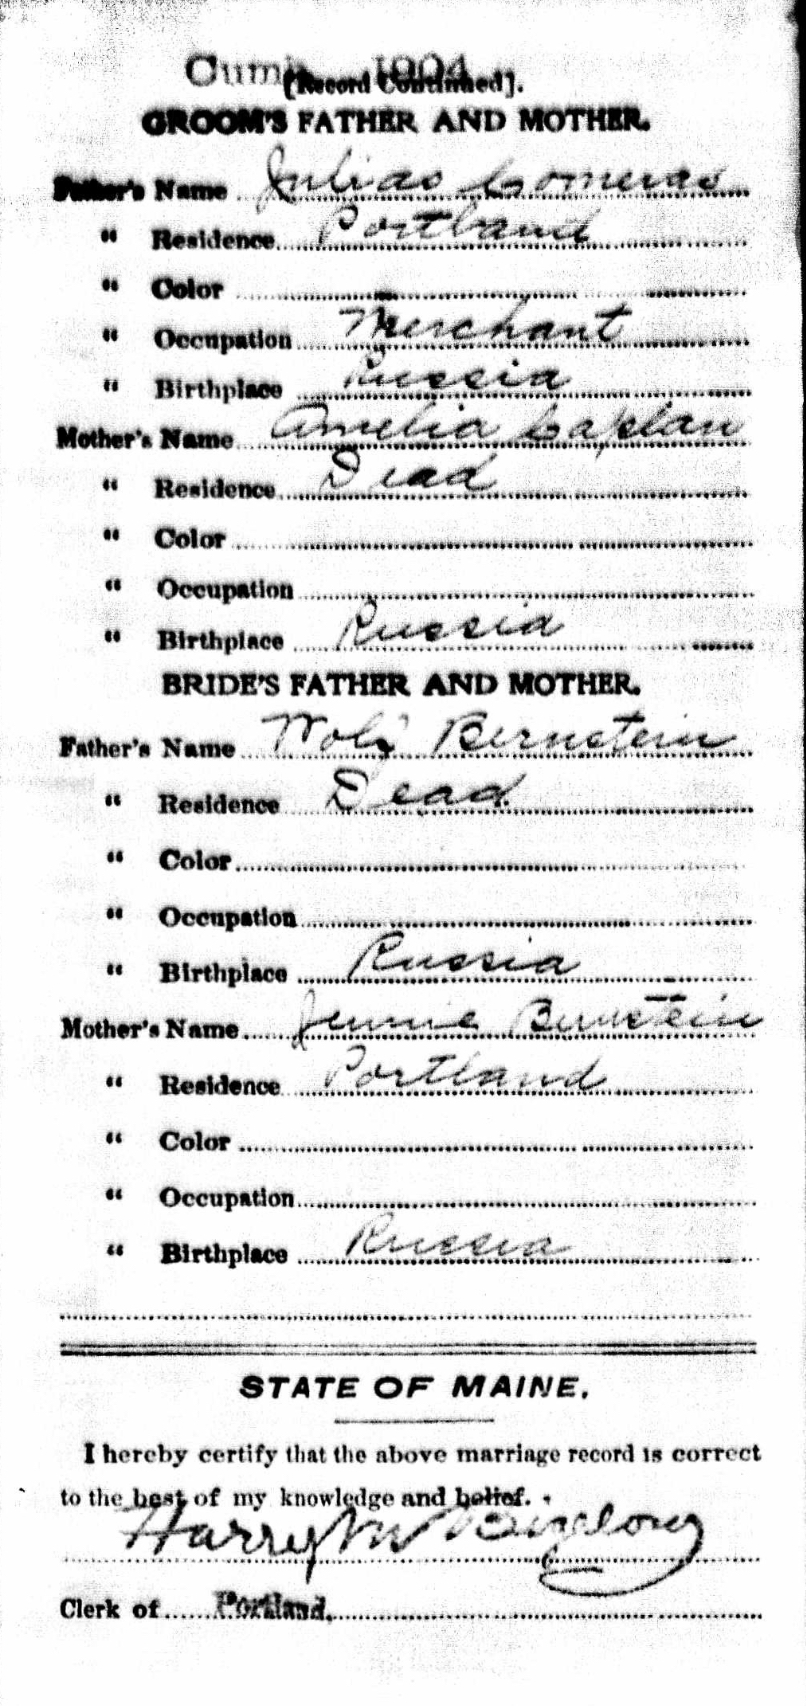 Cum 1904
[Record Continued].
GROOM'S FATHER AND MOTHER.
Father's Name Julias Comeras
" Residence Portland
" Color
" Occupation Merchant
" Birthplace Russia
Mother's Name Amelia Caplan
" Residence Dead
" Color
" Occupation
" Birthplace Russia
BRIDE'S FATHER AND MOTHER.
Father's Name Bernstein
" Residence Dead
" Color
" Occupation
" Birthplace Russia
Mother's Name Jennie Bernstein
" Residence Portland
" Color
" Occupation
" Birthplace Russia
STATE OF MAINE.
I hereby certify that the above marriage record is correct
to the best of my knowledge and belief.
Harry
Clerk of Portland.